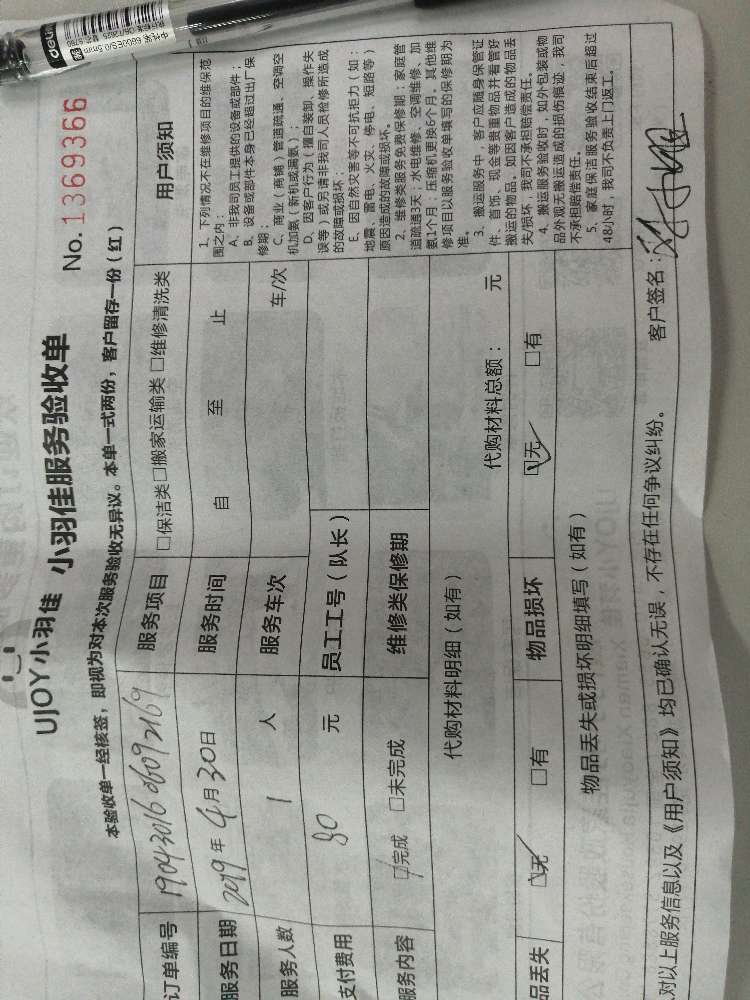 UJOY小羽佳 小羽佳服务验收单
No. 1369366
本验收单一经核签，即视为对本次服务验收无异议。本单一式两份，客户留存一份（红）
订单编号 1904301606092169 服务项目 □保洁类□搬家运输类 □维修清洗类
服务日期 2019年4月30日 服务时间 自 至 止
服务人数 1 人 服务车次 车/次
支付费用 80 元 员工工号（队长）
服务内容 □完成 □未完成 维修类保修期
代购材料明细（如有） 代购材料总额： 元
品丢失 □无 □有 物品损坏 □无 □有
物品丢失或损坏明细填写（如有）
用户须知
1、下列情况不在维修项目的维保范
围之内：
A、非我司员工提供的设备或部件；
B、设备或部件本身已经超过出厂保
修期；
C、商业（商铺）管道疏通、空调空
机加氨（新机或漏氨）；
D、因客户行为（擅自装卸、操作失
误等）或另请非我司人员检修所造成
的故障或损坏；
E、因自然灾害等不可抗拒力（如：
地震、雷电、火灾、停电、短路等）
原因造成的故障或损坏。
2、维修类服务免费保修期：家庭管
道疏通3天；水电维修、空调维修、加
氨1个月；压缩机更换6个月。其他维
修项目以服务验收单填写的保修期为
准。
3、搬运服务中，客户应随身保管证
件、首饰、现金等贵重物品并看管好
搬运的物品。如因客户造成的物品丢
失/损坏，我司不承担赔偿责任。
4、搬运服务验收时，如外包装或物
品外观无搬运造成的损伤痕迹，我司
不承担赔偿责任。
5、家庭保洁服务验收结束后超过
48小时，我司不负责上门返工。
对以上服务信息以及《用户须知》均已确认无误，不存在任何争议纠纷。 客户签名：
deli